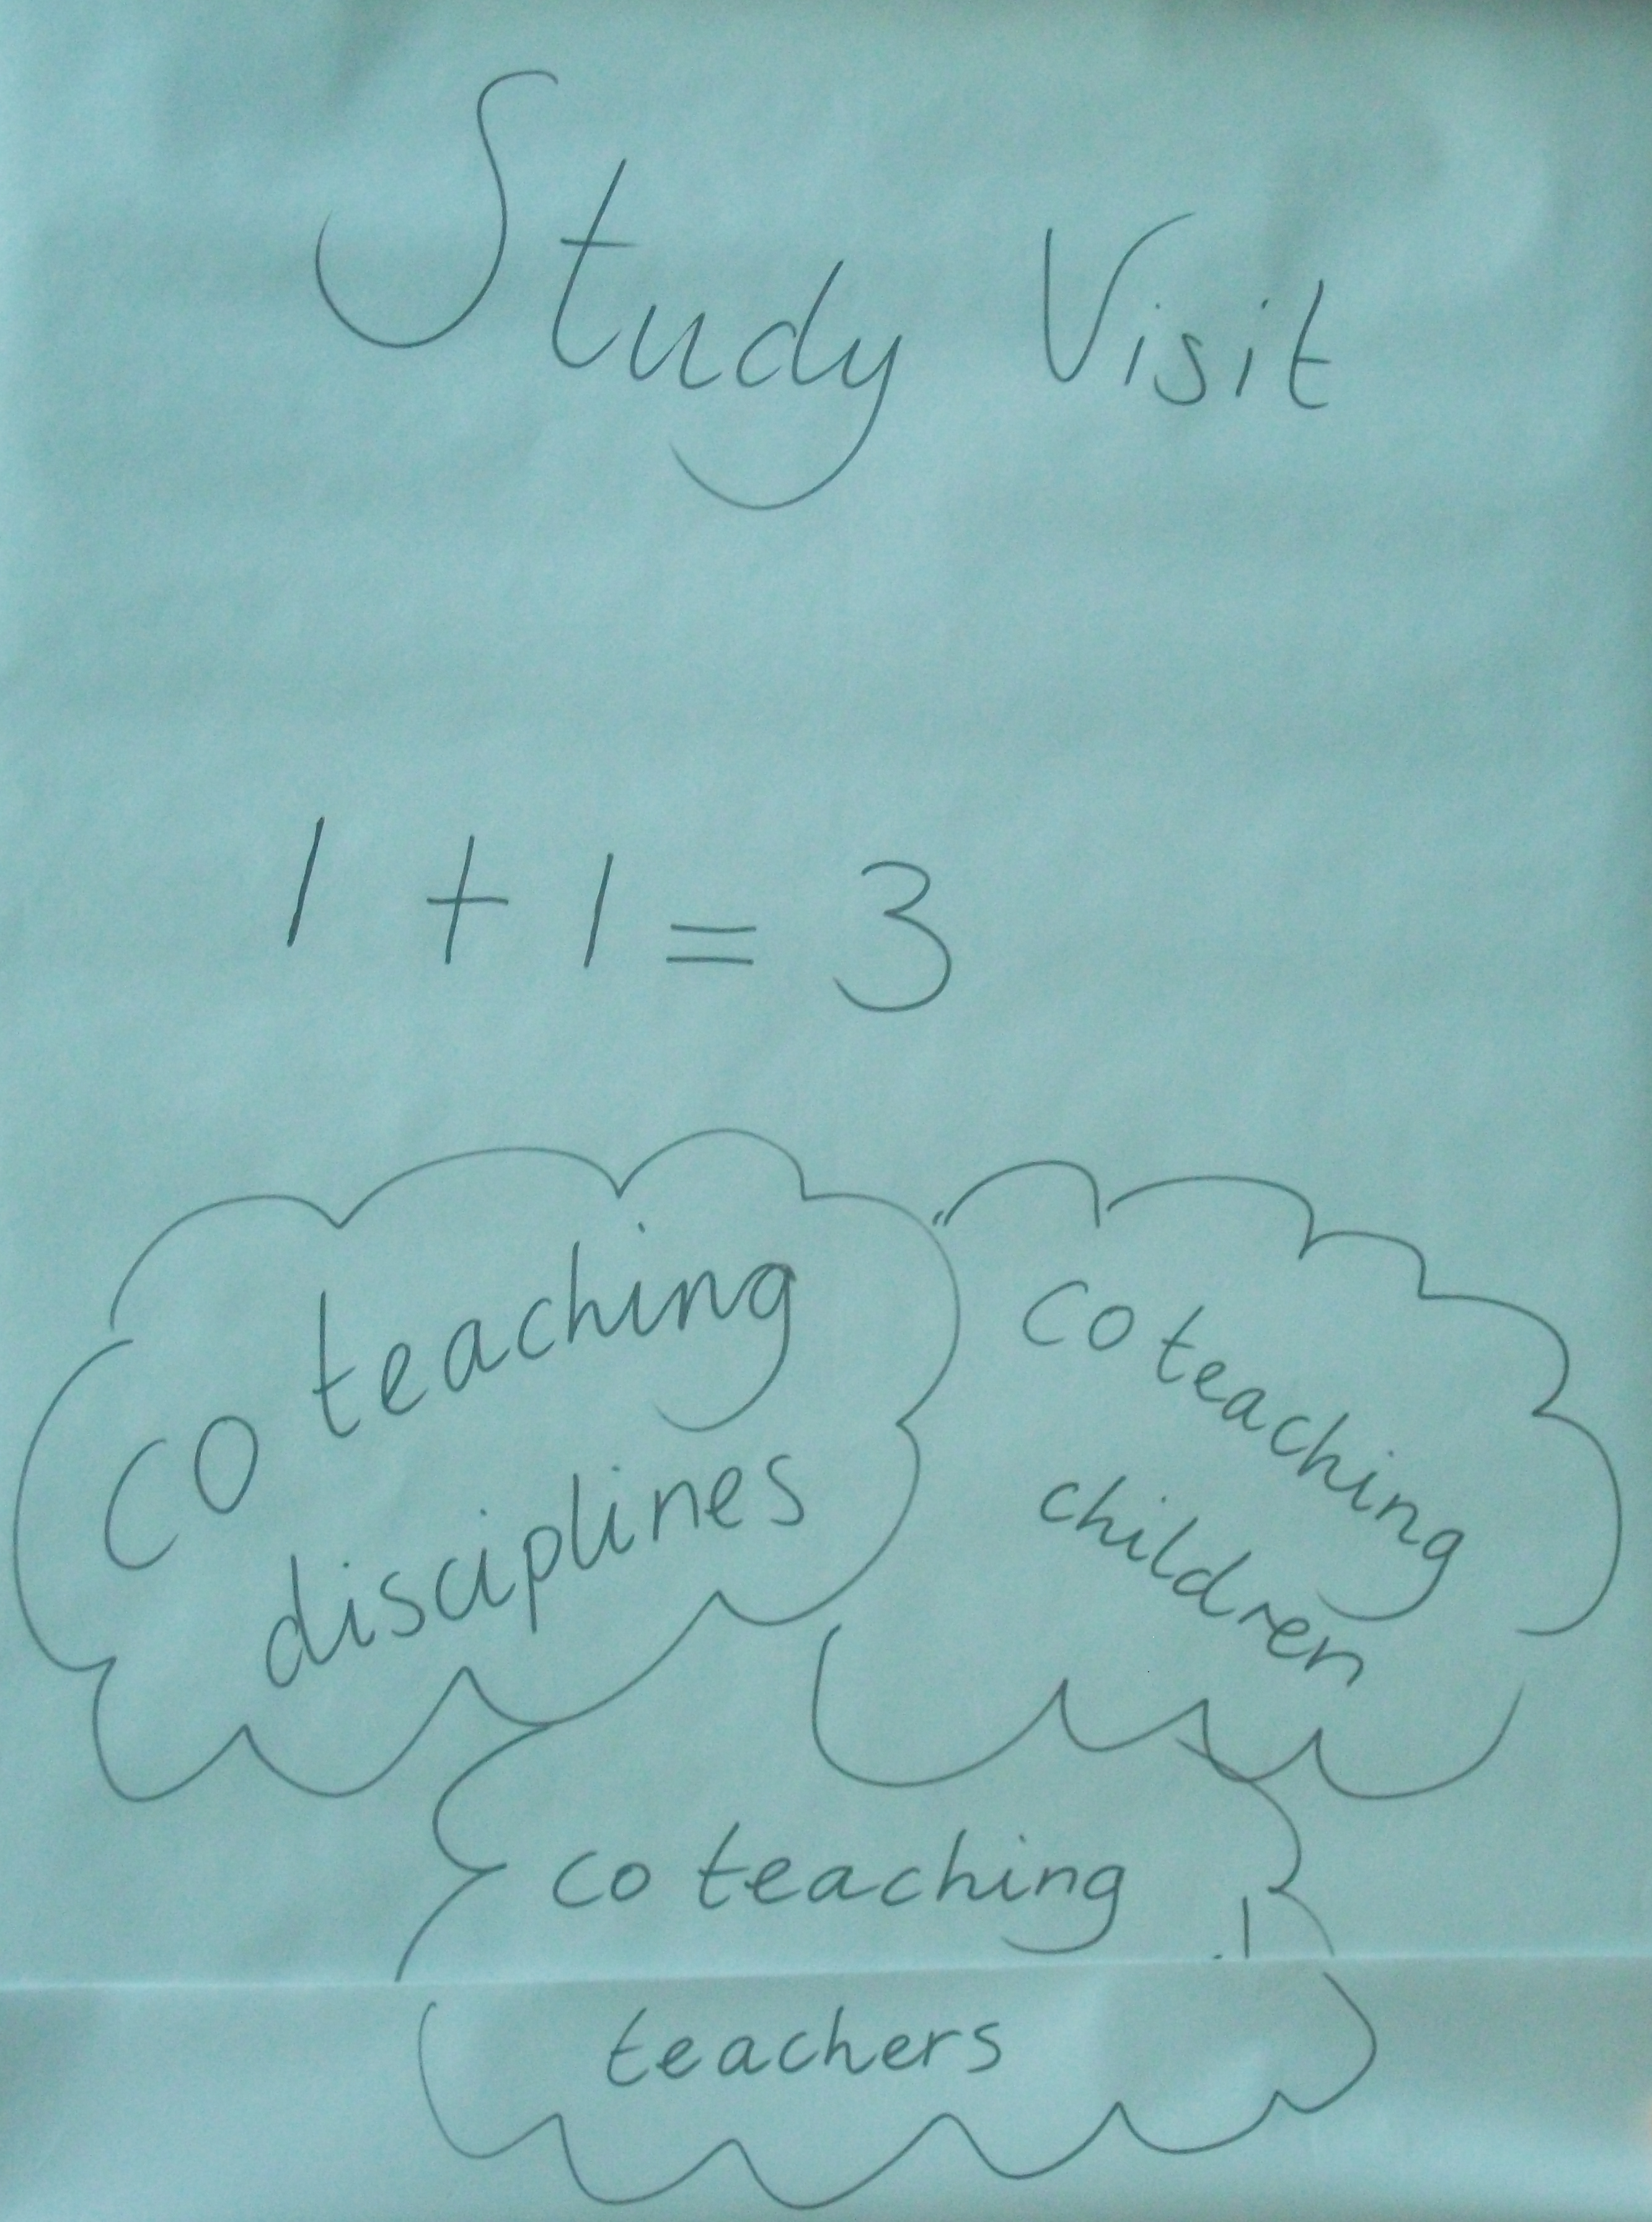 Study Visit
1 + 1 = 3
co teaching
disciplines
co teaching
children
co teaching
teachers